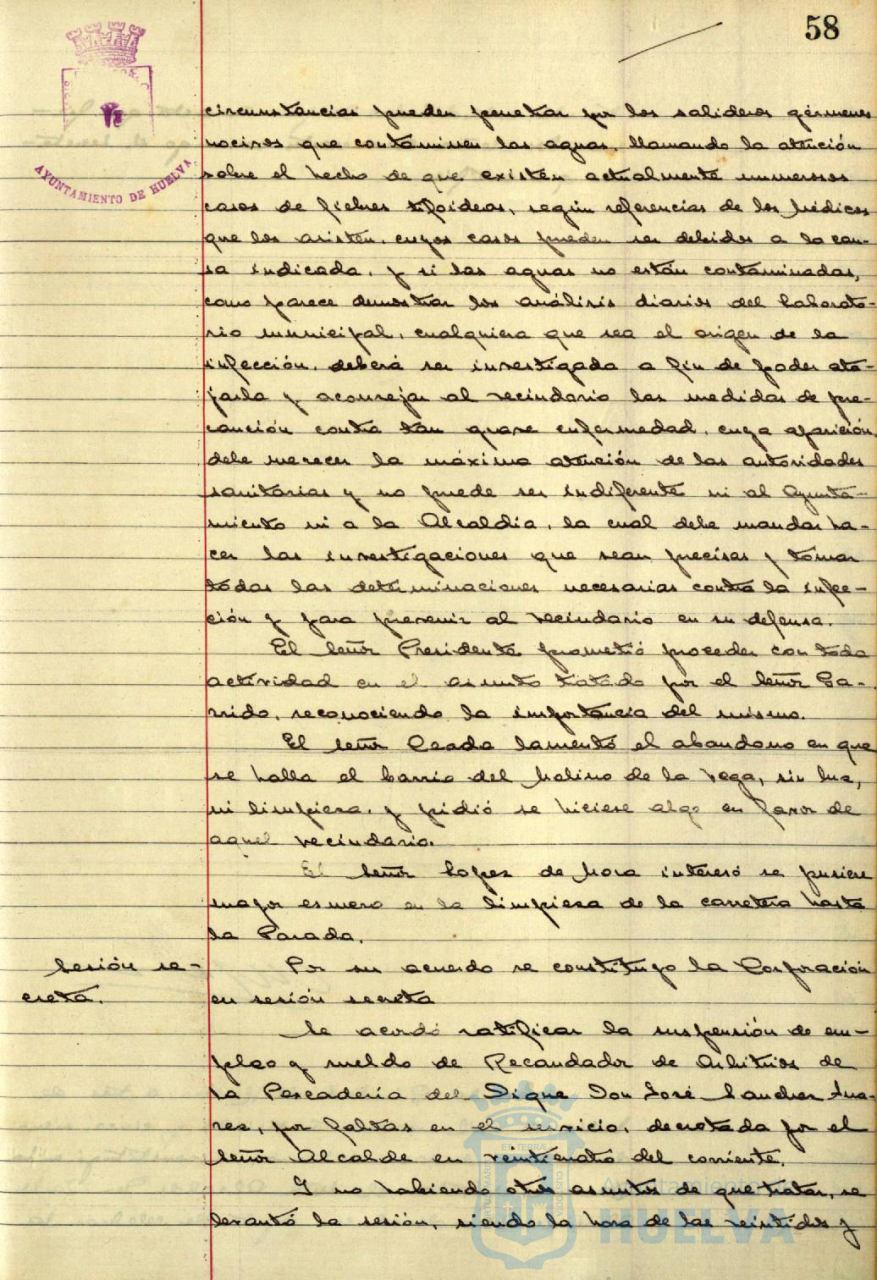 58
AYUNTAMIENTO DE HUELVA
circunstancias pueden penetrar por los salideros gérmenes
nocivos que contaminen las aguas, llamando la atención
sobre el hecho de que existen actualmente numerosos
casos de fiebres tifoideas, según referencias de los Médicos
que los asisten, cuyos casos pueden ser debidos a la cau-
sa indicada, y si las aguas no están contaminadas,
como parece demostrar los análisis diarios del Laborato-
rio municipal, cualquiera que sea el origen de la
infección, deberá ser investigada a fin de poder ata-
jarla y aconsejar al vecindario las medidas de pre-
caución contra tan grave enfermedad, cuya aparición,
debe merecer la máxima atención de las autoridades
sanitarias y no puede ser indiferente ni al Ayunta-
miento ni a la Alcaldía, la cual debe mandar ha-
cer las investigaciones que sean precisas y tomar
todas las determinaciones necesarias contra la infec-
ción y para prevenir al vecindario en su defensa.
El Señor Presidente prometió proceder con toda
actividad en el asunto tratado por el Señor Ga-
rrido, reconociendo la importancia del mismo.
El señor Ceada lamentó el abandono en que
se halla el barrio del Molino de la Vega, sin luz,
ni limpieza, y pidió se hiciese algo en favor de
aquel vecindario.
El Señor Lopez de Mora interesó se pusiere
mayor esmero en la limpieza de la carretera hasta
la Parada.
Sesión se-
creta.
Por su acuerdo se constituyo la Corporación
en sesión secreta
Se acordó ratificar la suspensión de em-
pleo y sueldo de Recaudador de Arbitrios de
la Pescadería del Dique Don José Sanchez Sua-
rez, por faltas en el servicio, decretada por el
Señor Alcalde en veinticuatro del corriente.
Y no habiendo otros asuntos de que tratar, se
levantó la sesión, siendo la hora de las veintidos y
Ayuntamiento
HUELVA